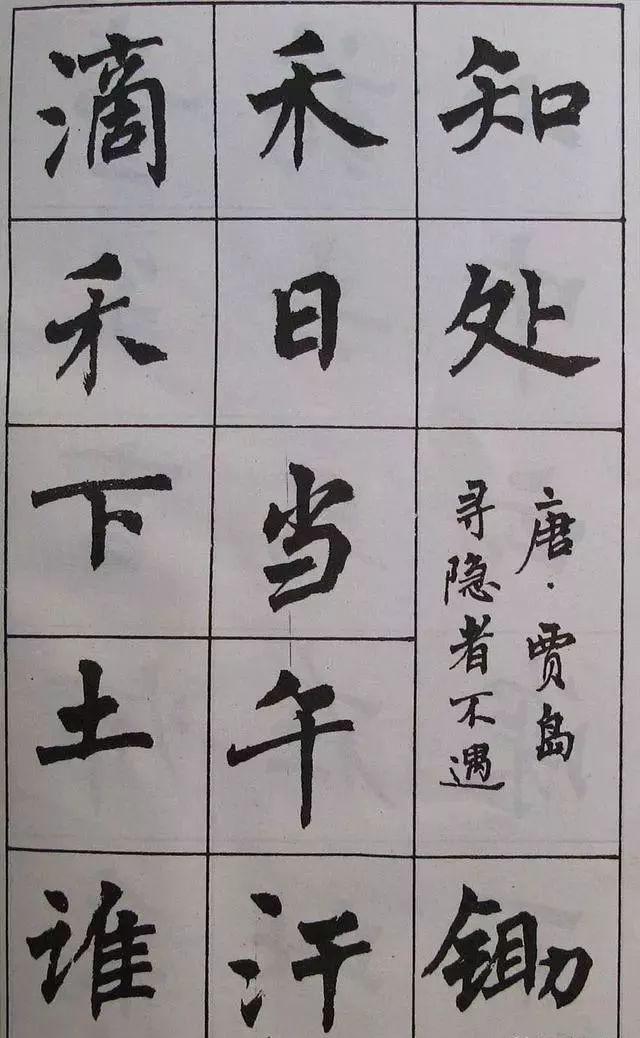 知处
唐·贾岛
寻隐者不遇
锄
禾日当午汗
滴禾下土谁